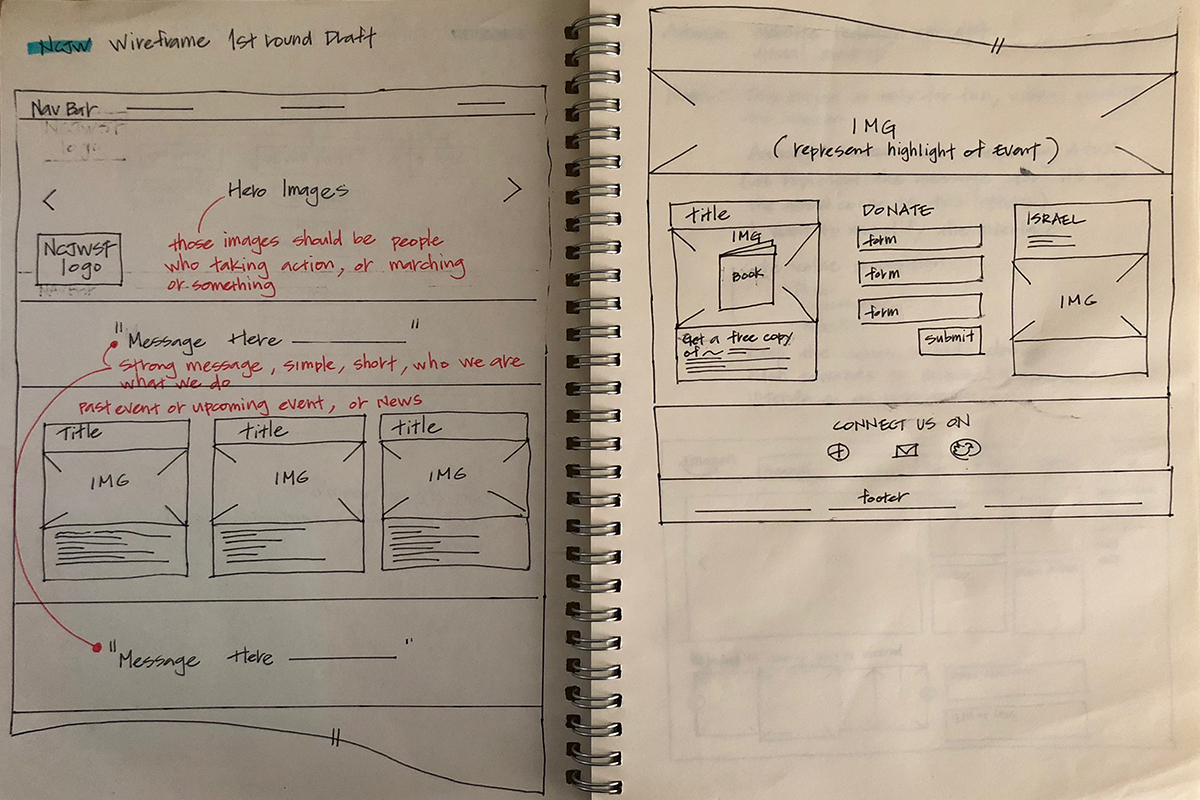 NCJW Wireframe 1st Round Draft
Nav Bar
Hero Images
NCJWSF
logo
those images should be people
who taking action, or marching
or something
"Message Here "
Strong message, simple, short, who we are
what we do
Past event or upcoming event, or News
Title
IMG
Title
IMG
Title
IMG
"Message Here "
IMG
( represent highlight of Event )
Title
IMG
Book
Get a free copy
of
DONATE
form
form
form
submit
ISRAEL
IMG
CONNECT US ON
footer